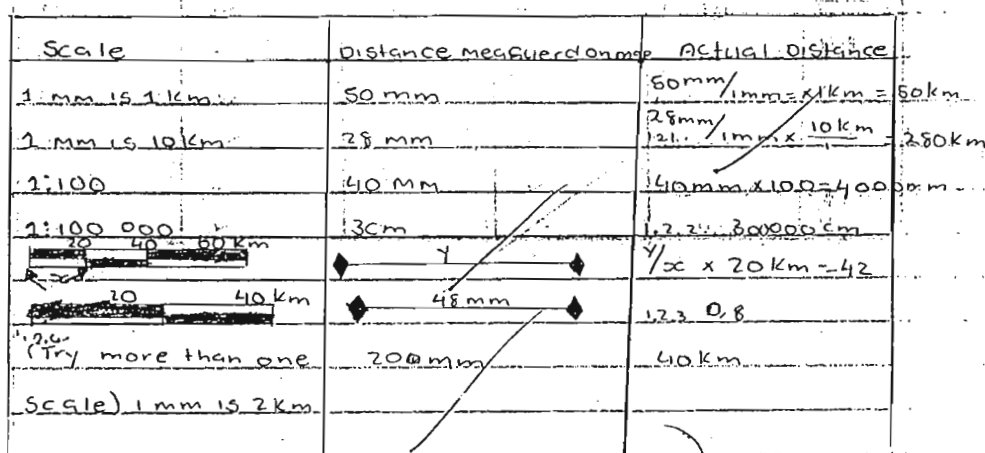 Scale Distance measuerd on map Actual Distance
1 mm is 1 km 50 mm 50mm/1mm = x1km = 50km
1 mm is 10 km 28 mm 28mm/1mm x 10km = 280km
1.2.1.
1:100 40 mm 40mm x100=4000mm
1:100 000 3cm 1.2.2 300000cm
20 40 60 km y y/x x 20 km = 42
x
20 40 km 48 mm 1.2.3 0,8
1.2.4
(Try more than one 200mm 40km
scale) 1 mm is 2km